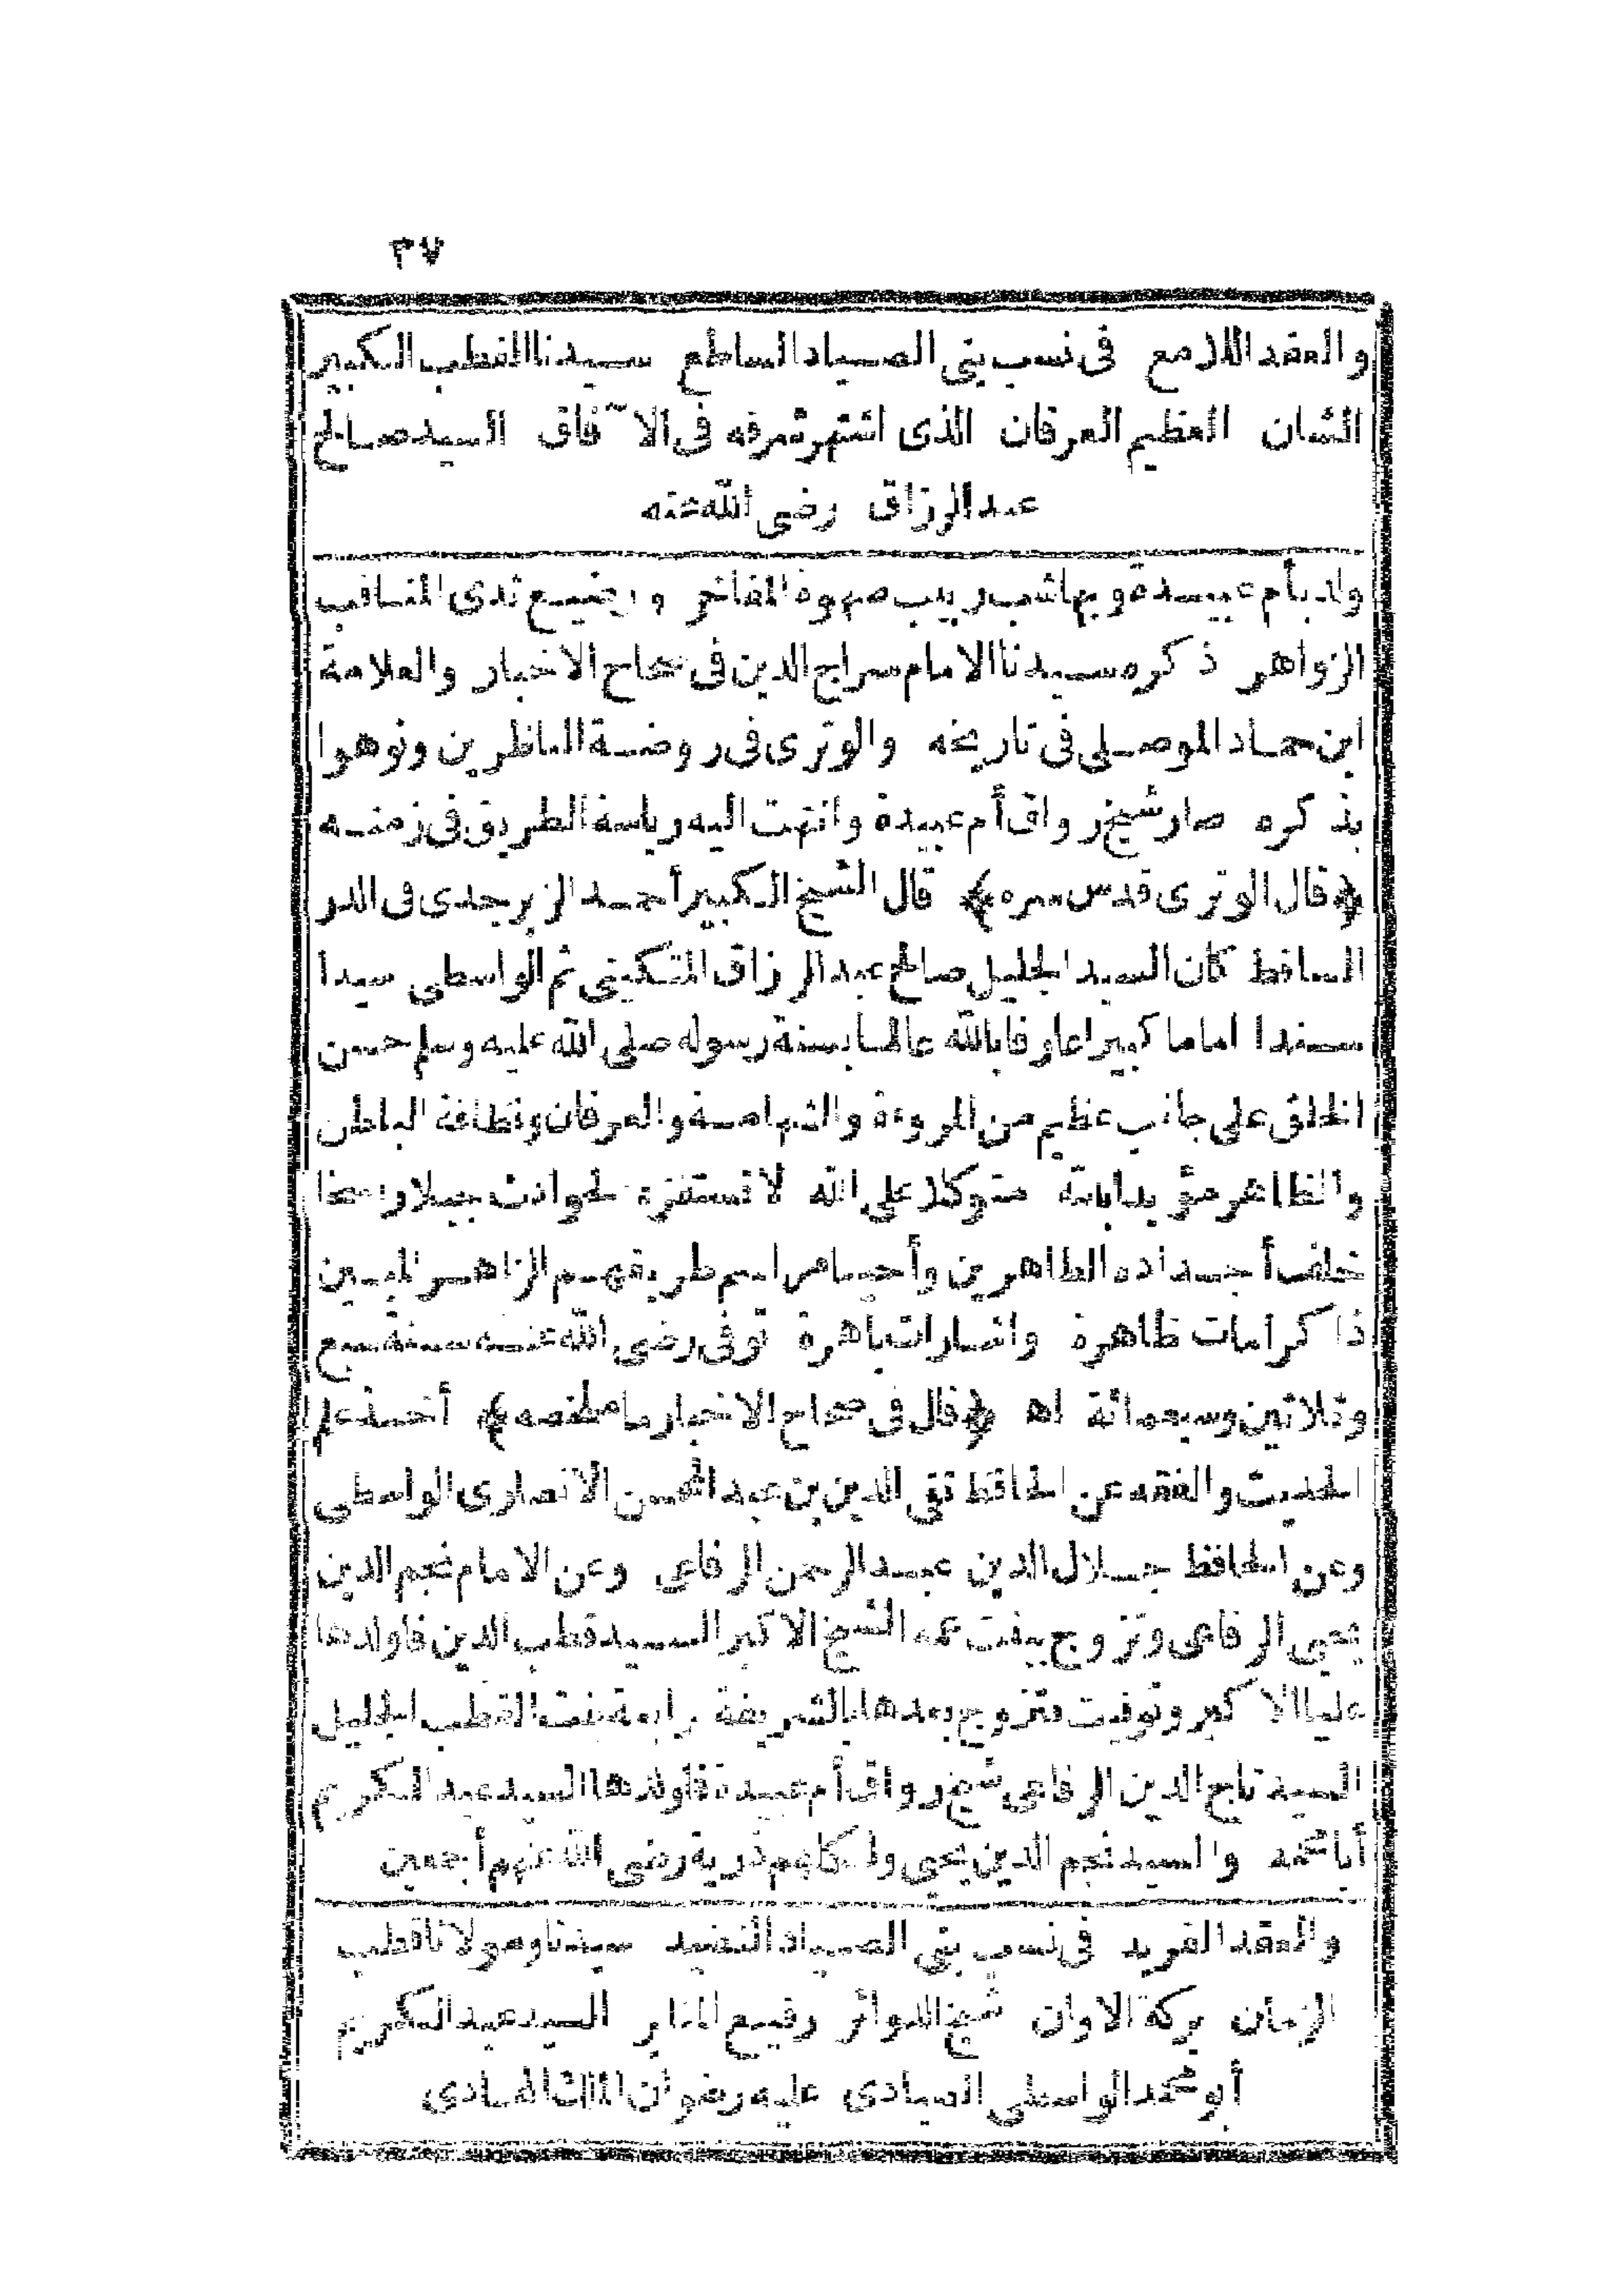 ٣٧
والعقد اللامع فى نسب بنى الصياد الساطع سيدنا القطب الكبير
الشان العظيم العرفان الذى اشتهر شرفه فى الآفاق السيد صالح
عبد الرزاق رضى الله عنه
ولد بأم عبيدة وبها شب ربيب صهوة المفاخر ورضيع ثدى المناقب
الزواهر ذكره سيدنا الامام سراج الدين فى صحاح الاخبار والعلامة
ابن حماد الموصلى فى تاريخه والوترى فى روضة الناظرين ونوهوا
بذكره صار شيخ رواق أم عبيدة وانتهت اليه رياسة الطريق فى زمنه
﴿قال الوترى قدس سره﴾ قال الشيخ الكبير أحمد الزبرجدى فى الدر
الساقط كان السيد الجليل صالح عبد الرزاق المتكينى ثم الواسطى سيدا
سندا اماما كبيرا عارفا بالله عالما بسنة رسوله صلى الله عليه وسلم حسن
الخلق على جانب عظيم من المروءة والشهامة والعرفان ونظافة الباطن
والظاهر مؤيدا بالله متوكلا على الله لا تستفزه لحوادث جبلا راسخا
خلف أجداده الطاهرين وأحيا مراسم طريقهم الزاهر المبين
ذا كرامات ظاهرة واشارات باهرة توفى رضى الله عنه سنة سبع
وثلاثين وسبعمائة اه ﴿قال فى صحاح الاخبار ما ملخصه﴾ أخذ علم
الحديث والفقه عن الحافظ تقى الدين بن عبد المحسن الانصارى الواسطى
وعن الحافظ جلال الدين عبد الرحمن الرفاعى وعن الامام نجم الدين
يحيى الرفاعى وتزوج ببنت عمه الشيخ الاكبر السيد قطب الدين فاولدها
عليا الاكبر وتوفيت فتزوج بعدها بالشريفة رابعة بنت القطب الجليل
السيد تاج الدين الرفاعى شيخ رواق أم عبيدة فاولدها السيد عبد الكريم
أبا محمد والسيد نجم الدين يحيى ولكلهم ذرية رضى الله عنهم أجمعين
والعقد الفريد فى نسب بنى الصياد النضيد سيدنا ومولانا قطب
الزمان بركة الاوان شيخ الدوائر رفيع المنابر السيد عبد الكريم
أبو محمد الواسطى الصيادى عليه رضوان الملك الهادى